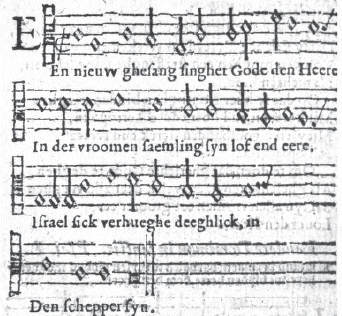 En nieuw ghesang singhet Gode den Heere
In der vroomen saemling syn lof end eere,
Israel sick verhueghe deeghlick, in
Den schepper syn.